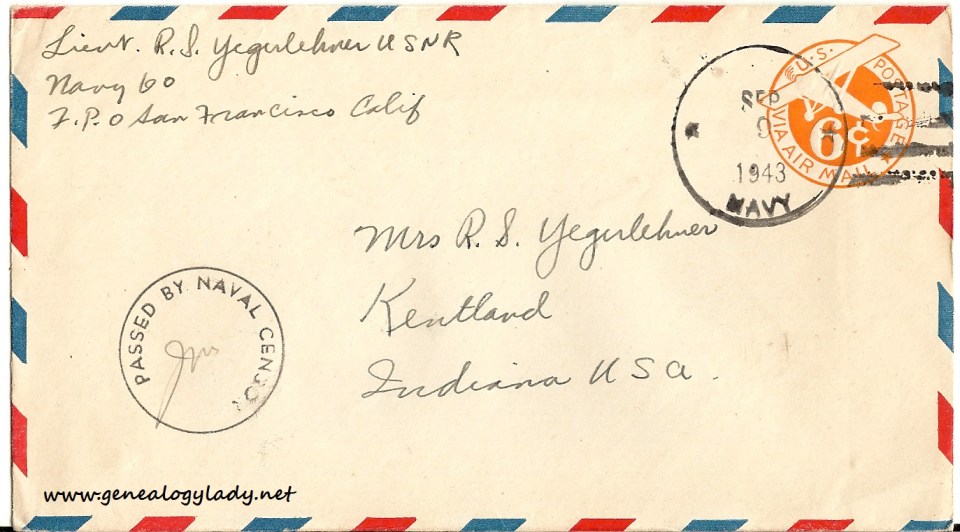 Lieut. R.S. Yegerlehner USNR
Navy 60
F.P.O San Francisco Calif
U.S. POSTAGE
6¢
VIA AIR MAIL
SEP
9
1943
NAVY
Mrs R. S. Yegerlehner
Kentland
Indiana USA.
PASSED BY NAVAL CENSOR
www.genealogylady.net